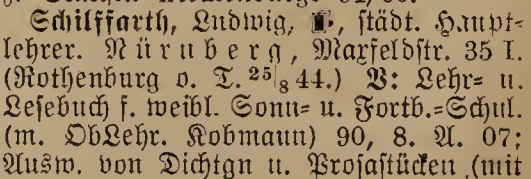 Schilffarth, Ludwig, städt. Haupt-
lehrer. Nürnberg, Maxfeldstr. 35 I.
(Rothenburg o. T. 25/8 44.) V: Lehr- u.
Lesebuch f. weibl. Sonn- u. Fortb.-Schul.
(m. ObLehr. Kobmann) 90, 8. A. 07;
Ausw. von Dichtgn u. Prosastücken (mit